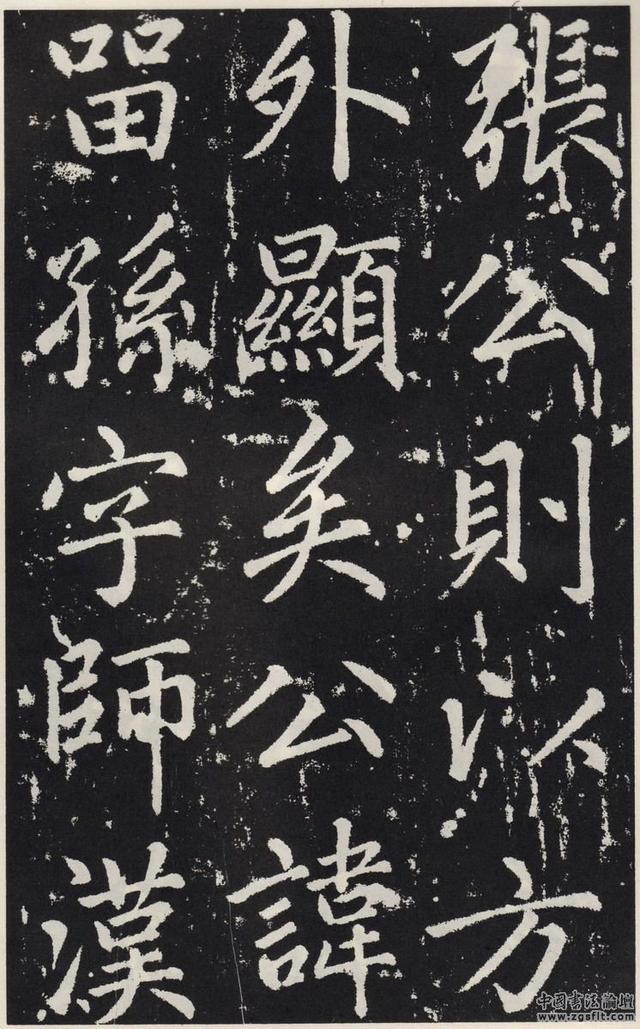 張公則以方
外顯矣公諱
留孫字師漢
中国书法论坛
www.zgsflt.com